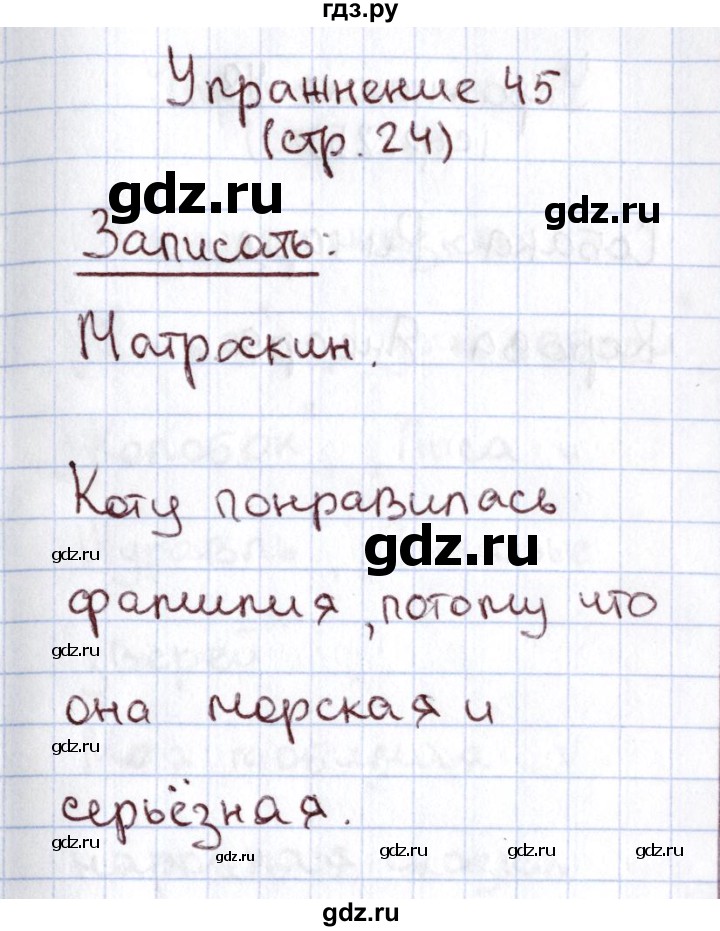 гдз.ру
Упражнение 45
(стр. 24)
gdz.ru
gdz.ru
Записать:
Матроскин.
Коту понравилась
gdz.ru
gdz.ru
фамилия, потому что
gdz.ru
она морская и
gdz.ru
серьёзная.
gdz.ru
gdz.ru
gdz.ru
gdz.ru
gdz.ru
gdz.ru